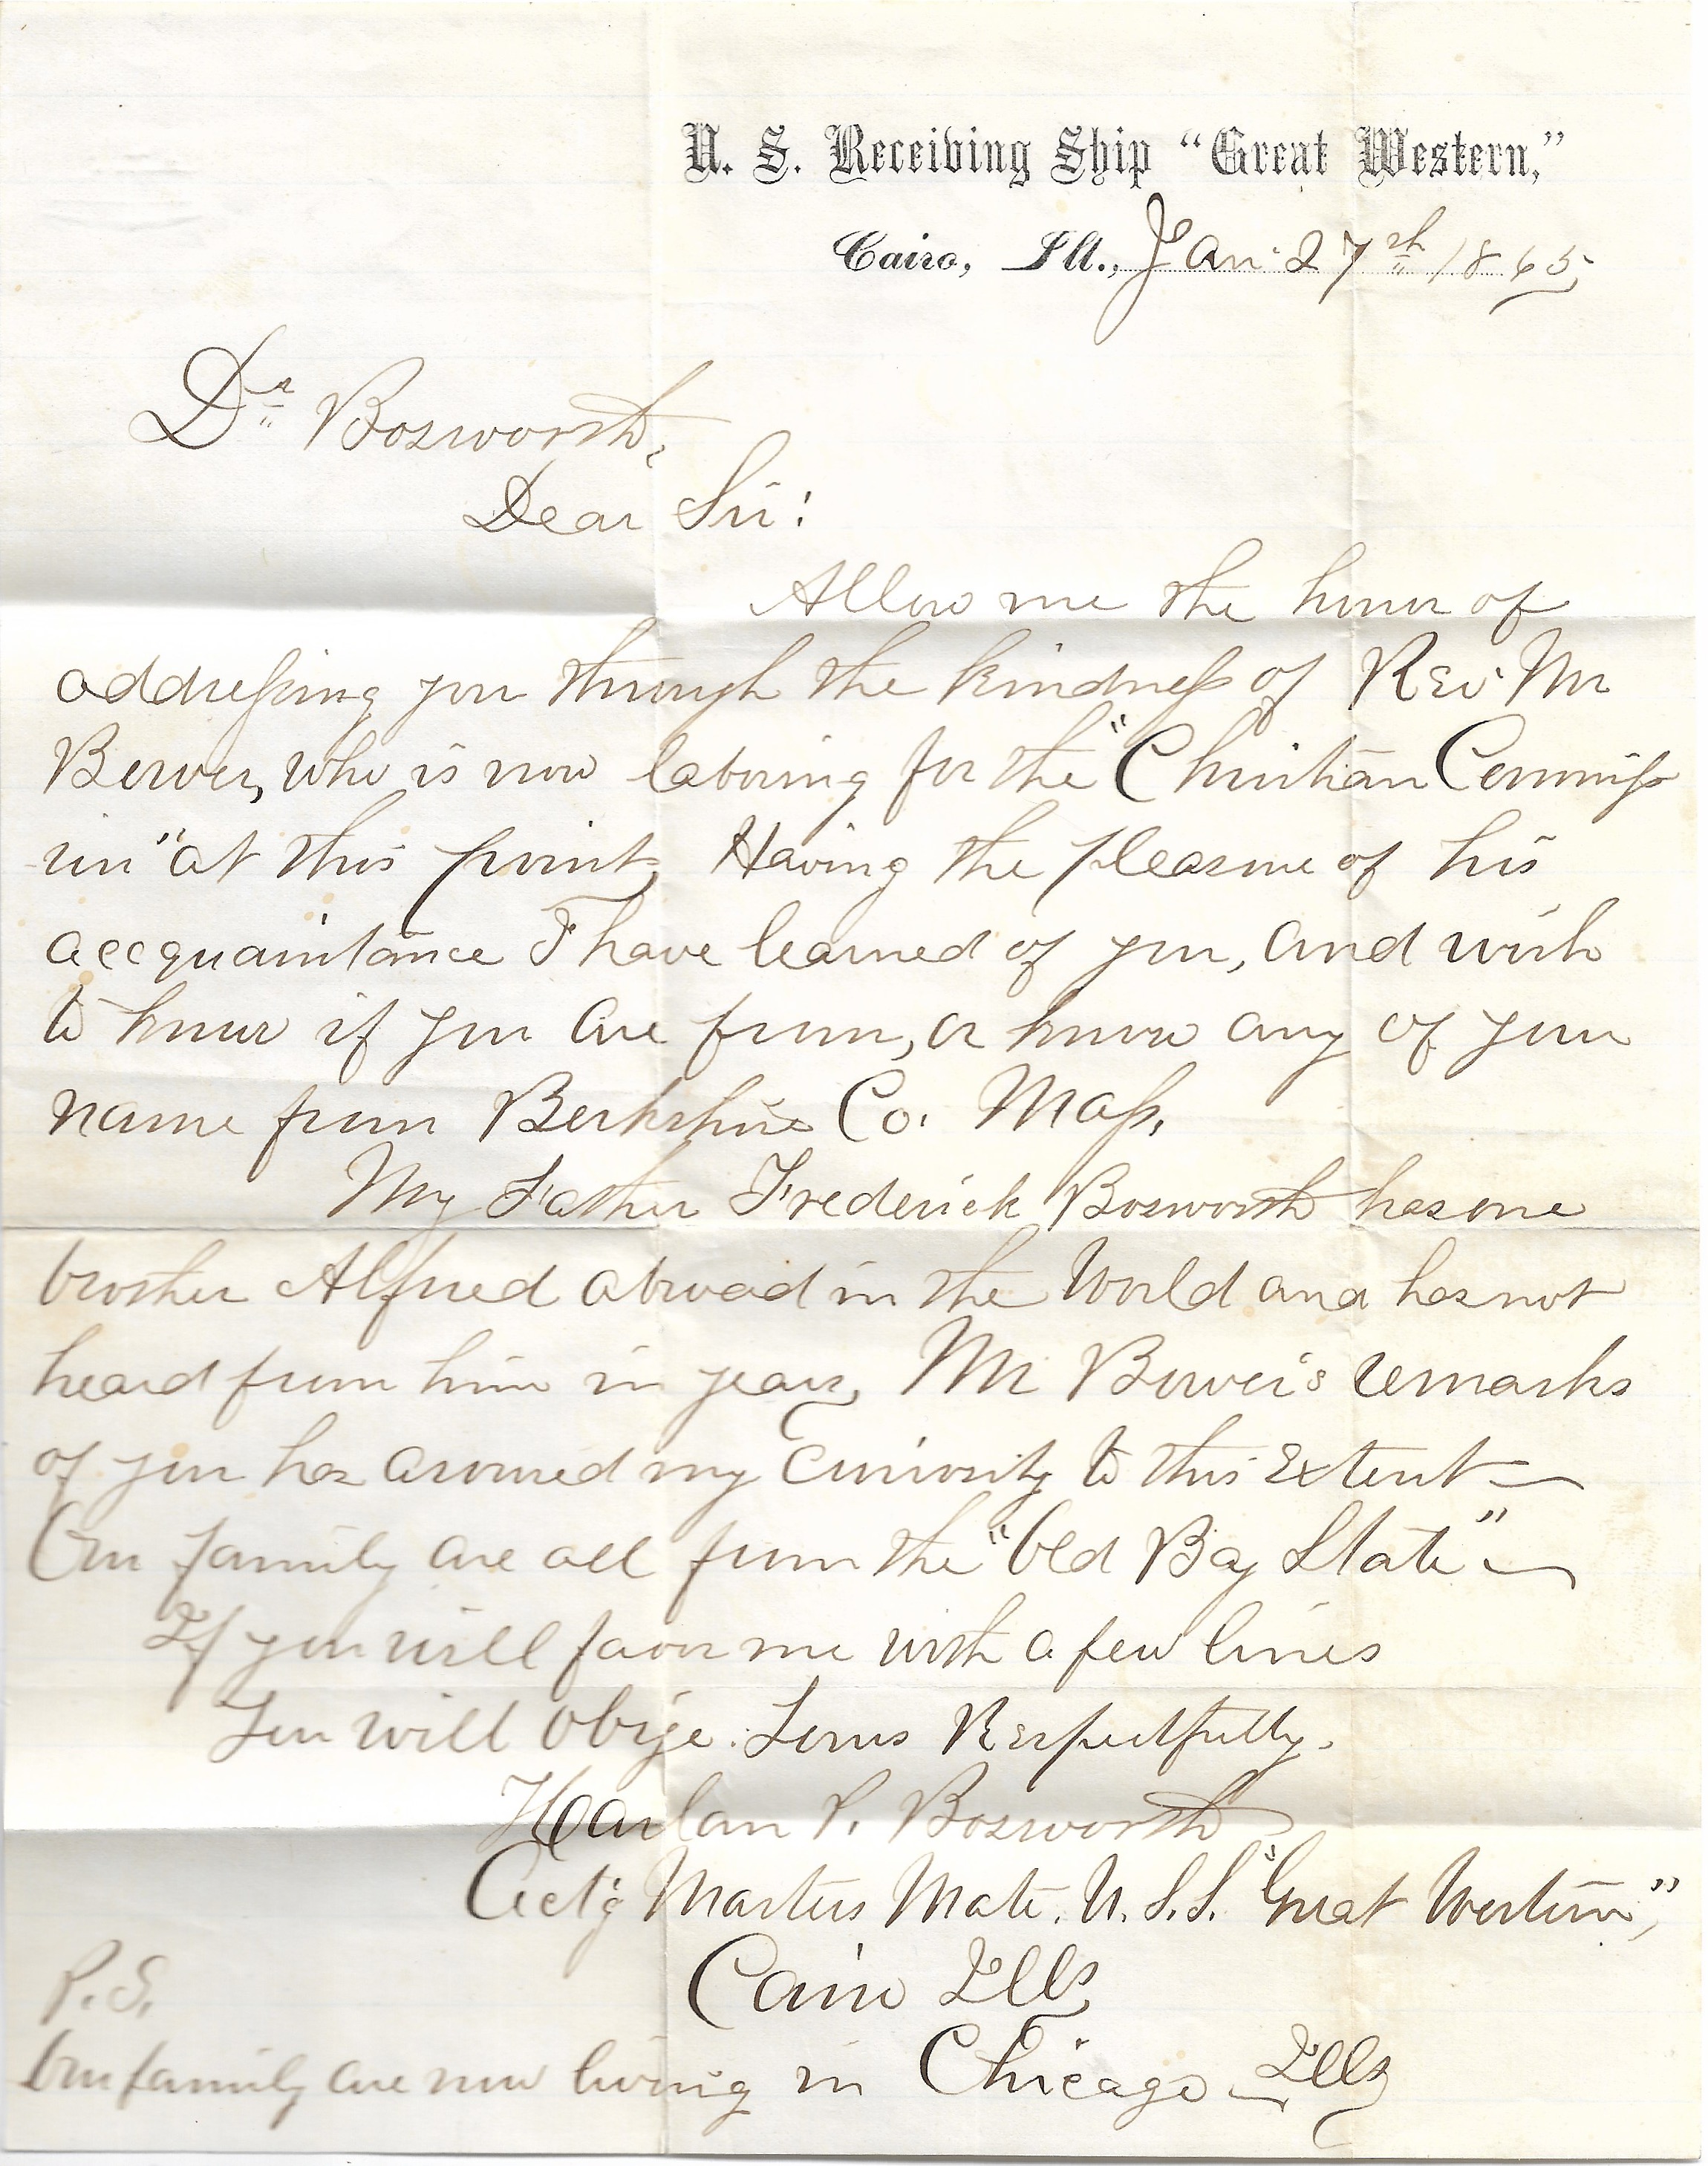 U. S. Receiving Ship "Great Western,"
Cairo, Ill., Jan. 27th 1865,
Dr Bosworth,
Dear Sir:
Allow me the honor of
addressing you through the kindness of Rev. Mr
Bower, who is now laboring for the "Christian Commiss
ion" at this point, Having the pleasure of his
accquaintance I have learned of you, and wish
to know if you are from, or know any of your
name from Berkshire Co. Mass,
My Father Frederick Bosworth has one
brother Alfred abroad in the World and has not
heard from him in years, Mr Bower's remarks
of you has aroused my curiosity to this extent—
Our family are all from the "Old Bay State"—
If you will favor me with a few lines
You will oblige. Yours Respectfully.
Harlan P. Bosworth
Act'g Masters Mate. U.S.S. "Great Western",
Cairo Ills,
P.S.
Our family are now living in Chicago Ills